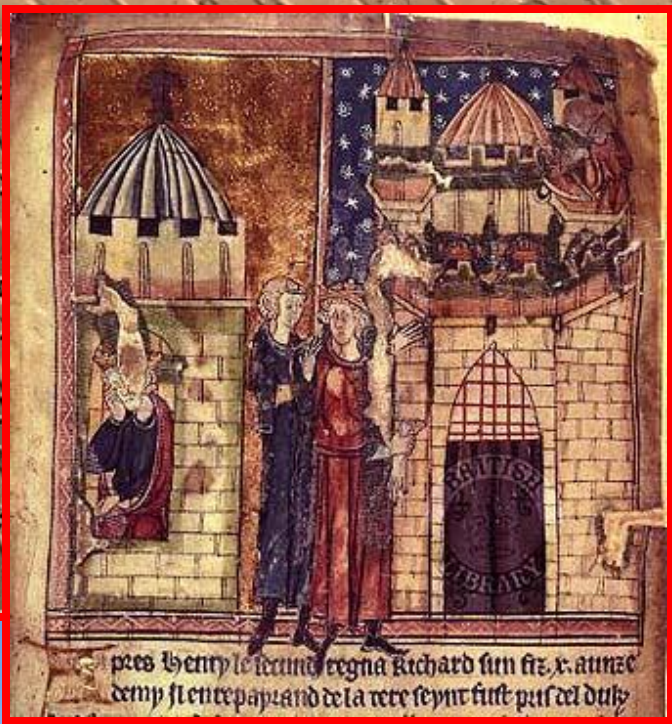 BRITISH
LIBRARY
Apres Henry le secund regna Richard sun fiz .x. aunz e
demy Il en repayrand de la tere seynt fust pris del duk